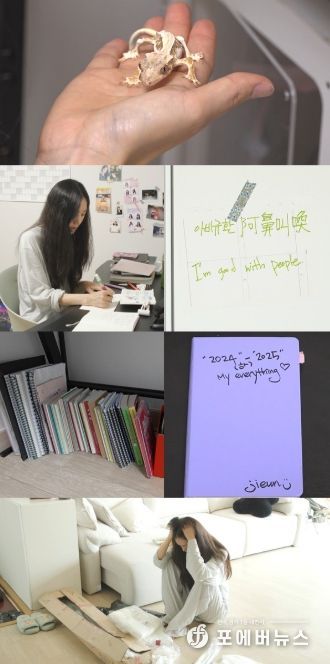 아비규환 阿鼻叫喚
I'm good with people
"2024" - "2025"
My everything ♡
jieun
포에버뉴스